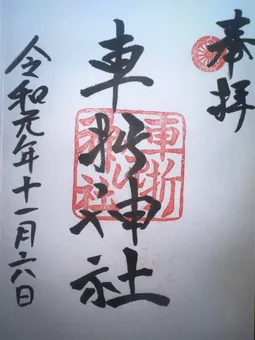 奉拝
車折神社
令和元年十一月六日
車折神社